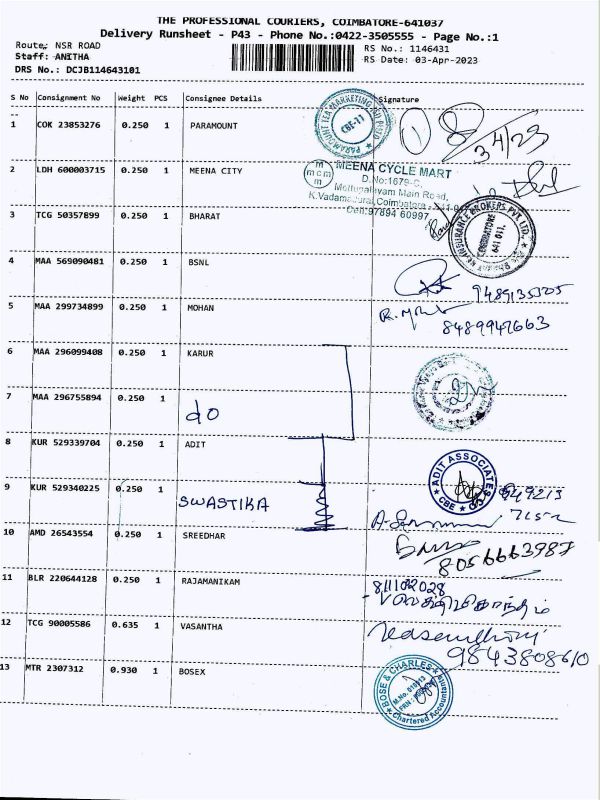 THE PROFESSIONAL COURIERS, COIMBATORE-641037
Delivery Runsheet - P43 - Phone No.:0422-3505555 - Page No.:1
Route: NSR ROAD
RS No.: 1146431
Staff: ANITHA
RS Date: 03-Apr-2023
DRS No.: DCJB114643101
S No Consignment No Weight PCS Consignee Details Signature
--
1 COK 23853276 0.250 1 PARAMOUNT
PARAMOUNT TEA MARKETING
CBE-11
3/4/23
2 LDH 600003715 0.250 1 MEENA CITY
mcm
MEENA CYCLE MART
D.No:1679-C,
Mettupalayam Main Road,
K.Vadamadurai, Coimbatore
Cell:97894 60997
3 TCG 50357899 0.250 1 BHARAT
INSURANCE BROKERS PVT. LTD.
COIMBATORE
641 011.
4 MAA 569090481 0.250 1 BSNL
9489135505
5 MAA 299734899 0.250 1 MOHAN
8489947663
6 MAA 296099408 0.250 1 KARUR
7 MAA 296755894 0.250 1
do
8 KUR 529339704 0.250 1 ADIT
ADIT ASSOCIATES
CBE
9 KUR 529340225 0.250 1 SWASTIKA
10 AMD 26543554 0.250 1 SREEDHAR
8056663987
11 BLR 220644128 0.250 1 RAJAMANIKAM
12 TCG 90005586 0.635 1 VASANTHA
9843808610
13 MTR 2307312 0.930 1 BOSEX
BOSE & CHARLES
Chartered Accountants